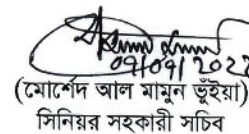 ০৭/০৭/2022
(মোর্শেদ আল মামুন ভূঁইয়া)
সিনিয়র সহকারী সচিব